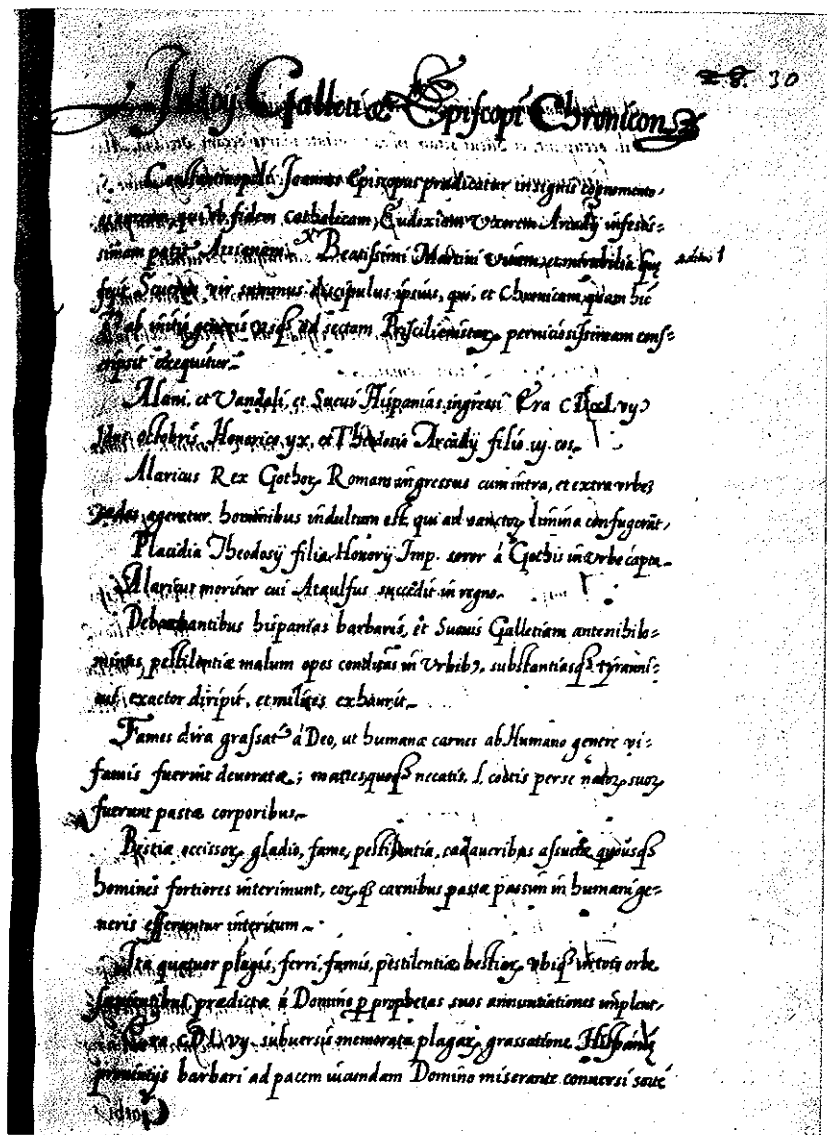 28. 30
Idacij Galletiæ Episcopi Chronicon
Constantinopoli Joannes Episcopus prædicatur insignis cognomento,
qui ob fidem catholicam, Eudoxiam uxorem Arcadij infestis=
simam patit Arrianam. Beatissimi Martini vitam, et mirabilia quę
vir summus discipulus ipsius, qui, et Chronicam quam hic
ab initij genesis usqȝ ad sectam Priscilianistaꝝ perniciosissimam cons=
cripsit exequitur.
Alani, et Vandali, et Suevi Hispanias ingressi Era
Idus octobris Honorico et Theodosio Arcadij filio iij cos.
Alaricus Rex Gothoꝝ Romam ingressus cum intra, et extra urbeȝ
cædes ageretur hominibus indultum est, qui ad sanctoꝝ limina confugerūt,
Placidia Theodosij filia, Honorij Imp. soror à Gothis in Urbe capta.
Alaricus moritur cui Ataulfus succedit in regno.
Debachantibus hispanias barbaris, et Suevis Galletiam antenihilo=
minus, pestilentiæ malum opes conditas in Urbibȝ, substantiasqȝ tyranni=
cus exactor diripit, et milites exhaurit.
Fames dira grassat à Deo, ut humanæ carnes ab Humano genere vi=
famis fuerint devoratæ; matres quoqȝ necatis, l. coctis per se natoꝝ suoꝝ
fuerunt pastæ corporibus.
Bestiæ occissoꝝ gladio, fame, pestilentia, cadaveribus assuetæ quousqȝ
homines fortiores interimunt, eoꝝ qȝ carnibus pastæ passim in humani ge=
neris efferantur interitum.
Ita quatuor plagis, ferri, famis, pestilentiæ, bestiaꝝ ubiqȝ in toto orbe
sævientibus, prædictæ à Domino ꝑ prophetas suos annuntiationes implent,
Era subversis memorata plagaꝝ grassatione Hispanię
provincijs barbari ad pacem ineundam Domino miserante conversi sorte